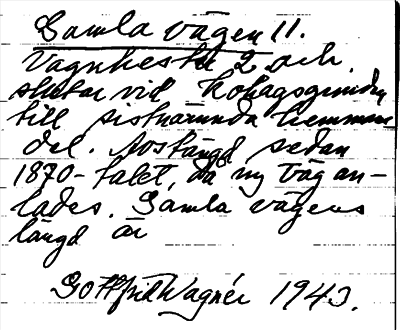 Gamla vägen 11.
Vagnhester 2 och
slutar vid Kohagsgrinden
till sistnämnda hemmans
del. Avstängd sedan
1870-talet, då ny väg an-
lades. Gamla vägens
längd är
Gottfrid Wagnér 1943.